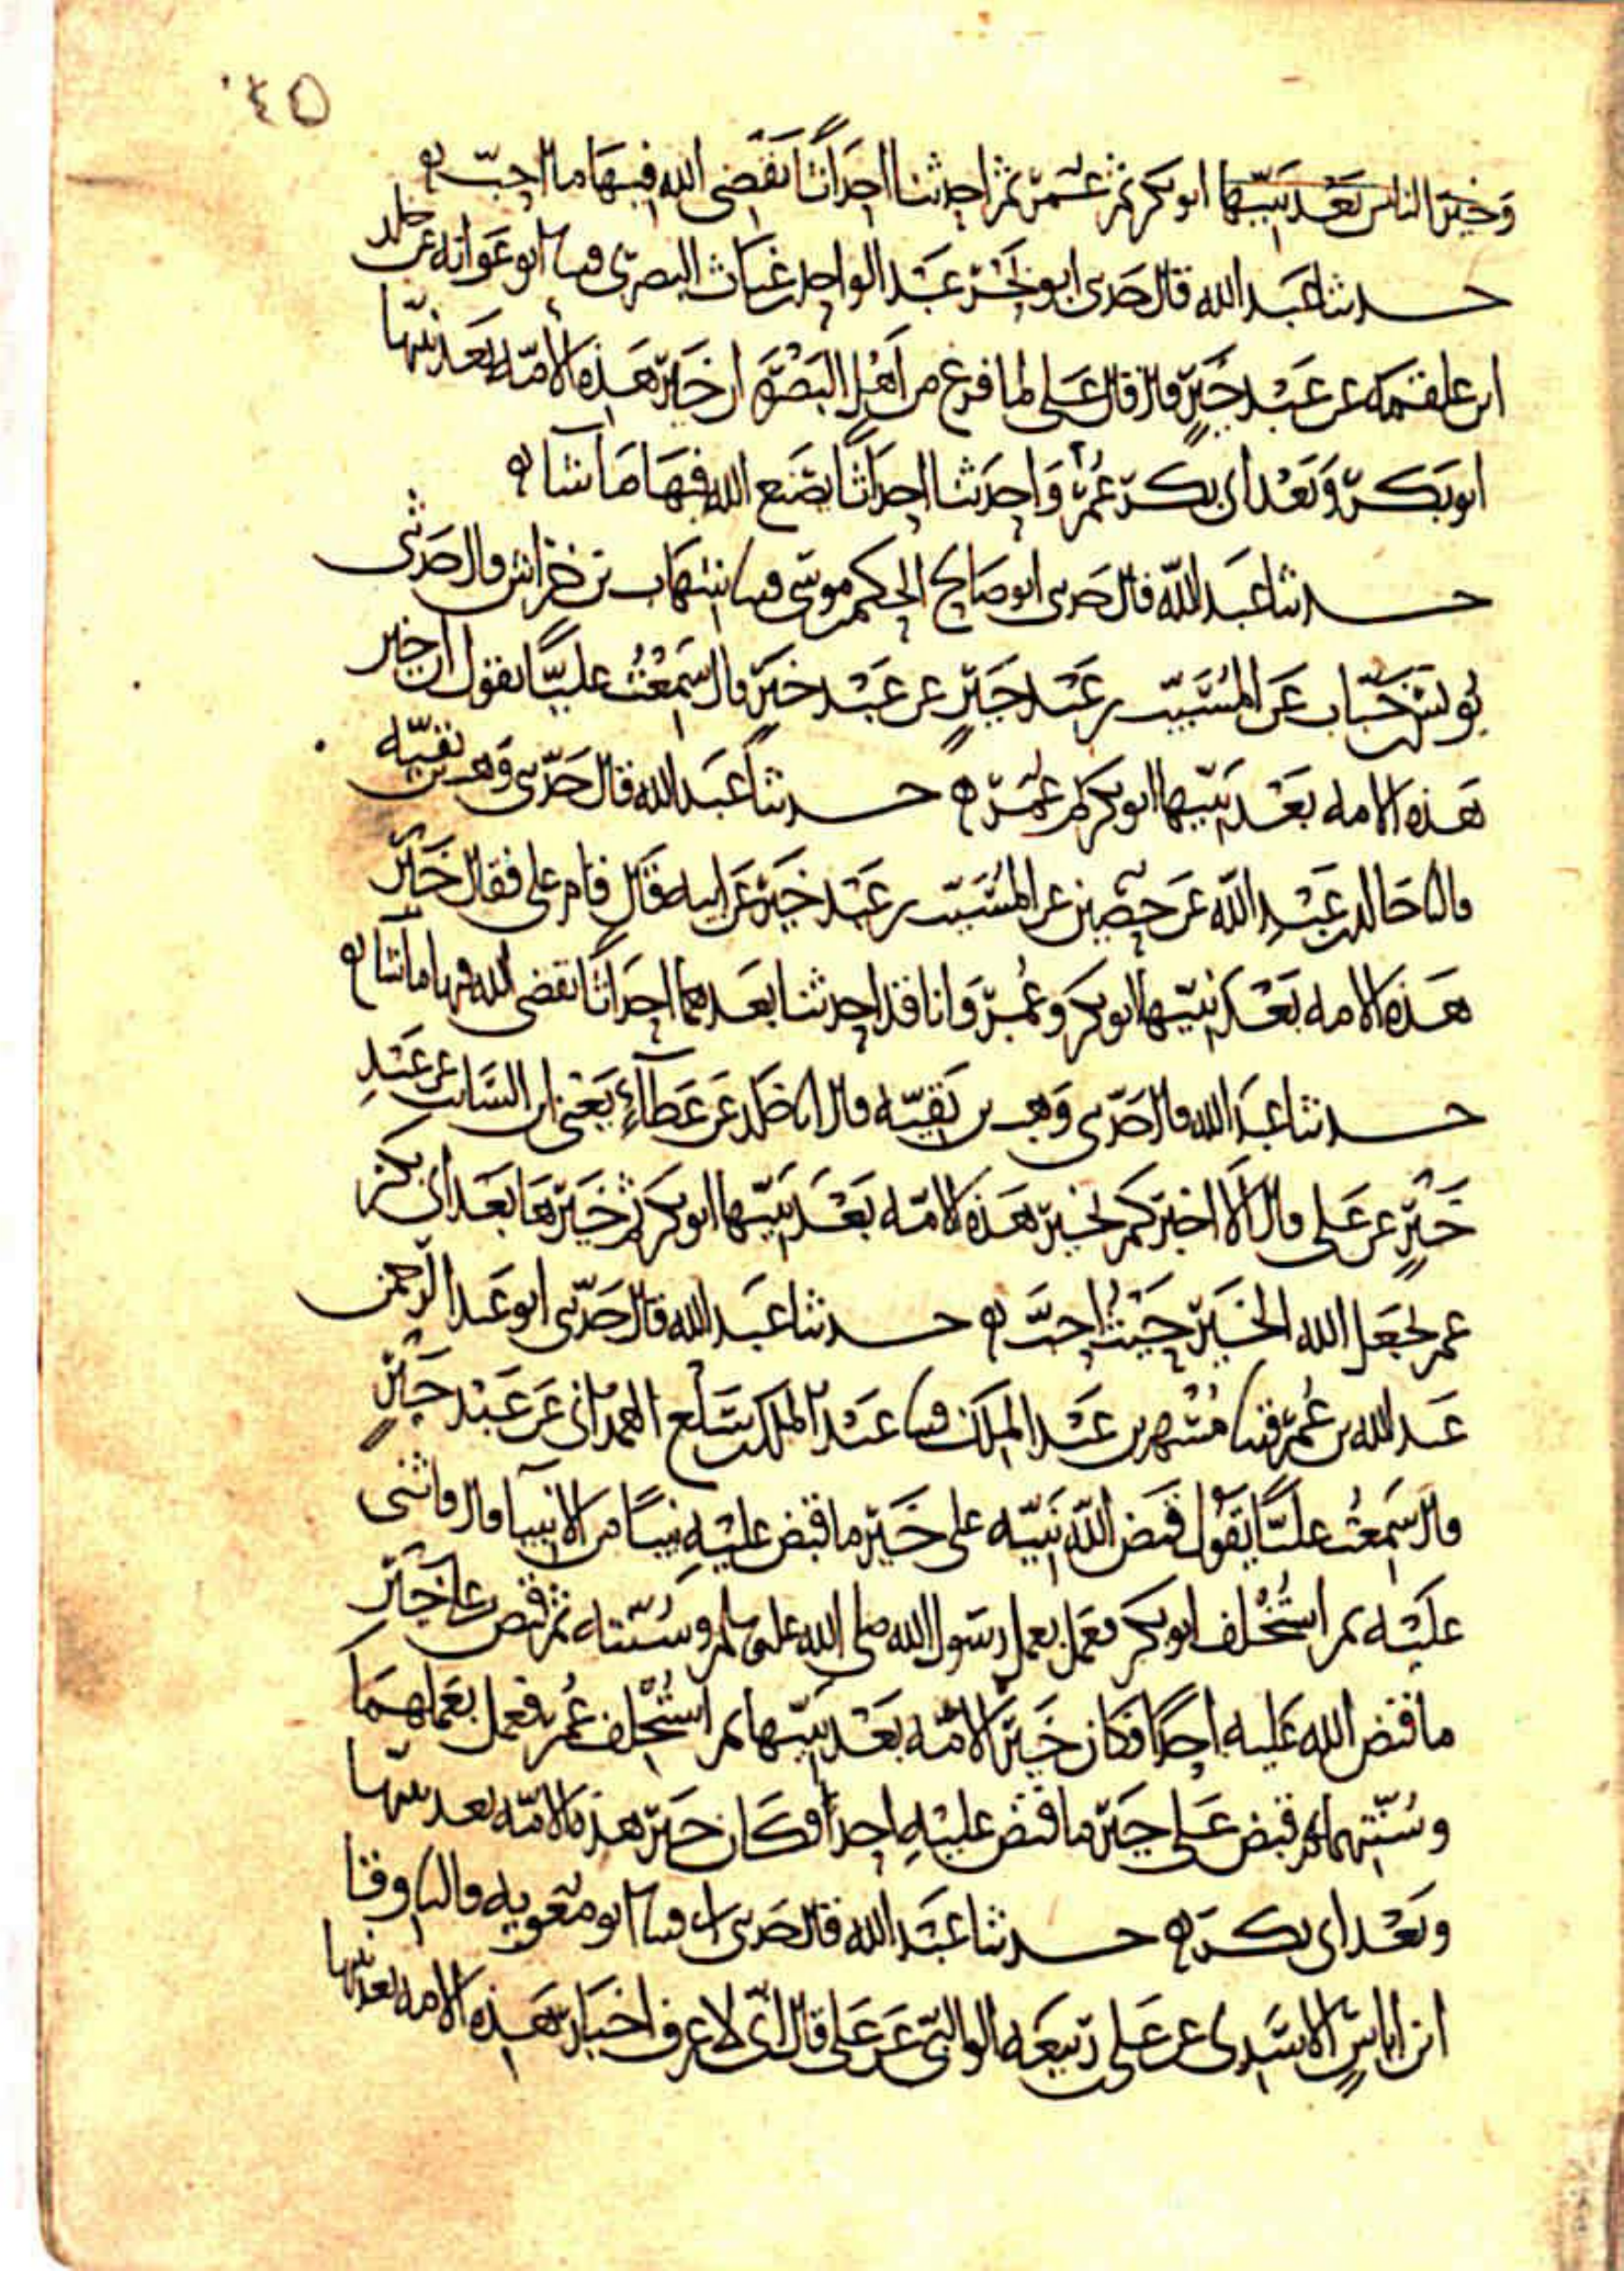 ٤٥
وخير الناس بعد نبيها ابو بكر ثم عمر ثم احدثنا احداثا يقضى الله فيها ما احب ه
حدثنا عبد الله قال حدثني ابو بحر عبد الواحد بن غياث البصرى قثنا ابو عوانه عن خلد
ابن علقمه عن عبد خير قال قال على لما فرغ من اهل البصره ان خير هذه الامه بعد نبيها
ابو بكر وبعد ابي بكر عمر واحدثنا احداثا يصنع الله فيها ما شا ه
حدثنا عبد الله قال حدثني ابو صالح الحكم بن موسى قثنا شهاب بن خراش قال حدثني
يونس بن خباب عن المسيب بن عبد خير عن عبد خير قال سمعت عليا يقول ان خير
هذه الامه بعد نبيها ابو بكر ثم عمر ه حدثنا عبد الله قال حدثني وهب بن بقيه
قال انا خالد بن عبد الله عن حصين عن المسيب بن عبد خير عن ابيه قال قام على فقال خير
هذه الامه بعد نبيها ابو بكر وعمر وانا قد احدثنا بعدهما احداثا يقضى الله فيها ما شا ه
حدثنا عبد الله قال حدثني وهب بن بقيه قال انا خلد عن عطاء يعني ابن السائب عن عبد
خير عن على قال الا اخبركم بخير هذه الامه بعد نبيها ابو بكر ثم خيرها بعد ابي بكر
عمر يجعل الله الخير حيث احب ه حدثنا عبد الله قال حدثني ابو عبد الرحمن
عبد الله بن عمر قثنا مسهر بن عبد الملك قثنا عبد الملك بن سلع الهمداني عن عبد خير
قال سمعت عليا يقول قبض الله نبيه على خير ما قبض عليه نبيا من الانبيا قال واثنى
عليه ثم استخلف ابو بكر فعمل بعمل رسول الله صلى الله عليه وسلم وسنته ثم قبض على خير
ما قبض الله عليه احدا فكان خير الامه بعد نبيها ثم استخلف عمر فعمل بعملهما
وسنتهما ثم قبض على خير ما قبض عليه احدا فكان خير هذه الامه بعد نبيها
وبعد ابي بكر ه حدثنا عبد الله قال حدثني ابي قثنا ابو معويه قال وقا
ابن اياس الاسدى عن على بن ربيعه الوالبي عن على قال انى لاعرف اخيار هذه الامه بعد نبيها